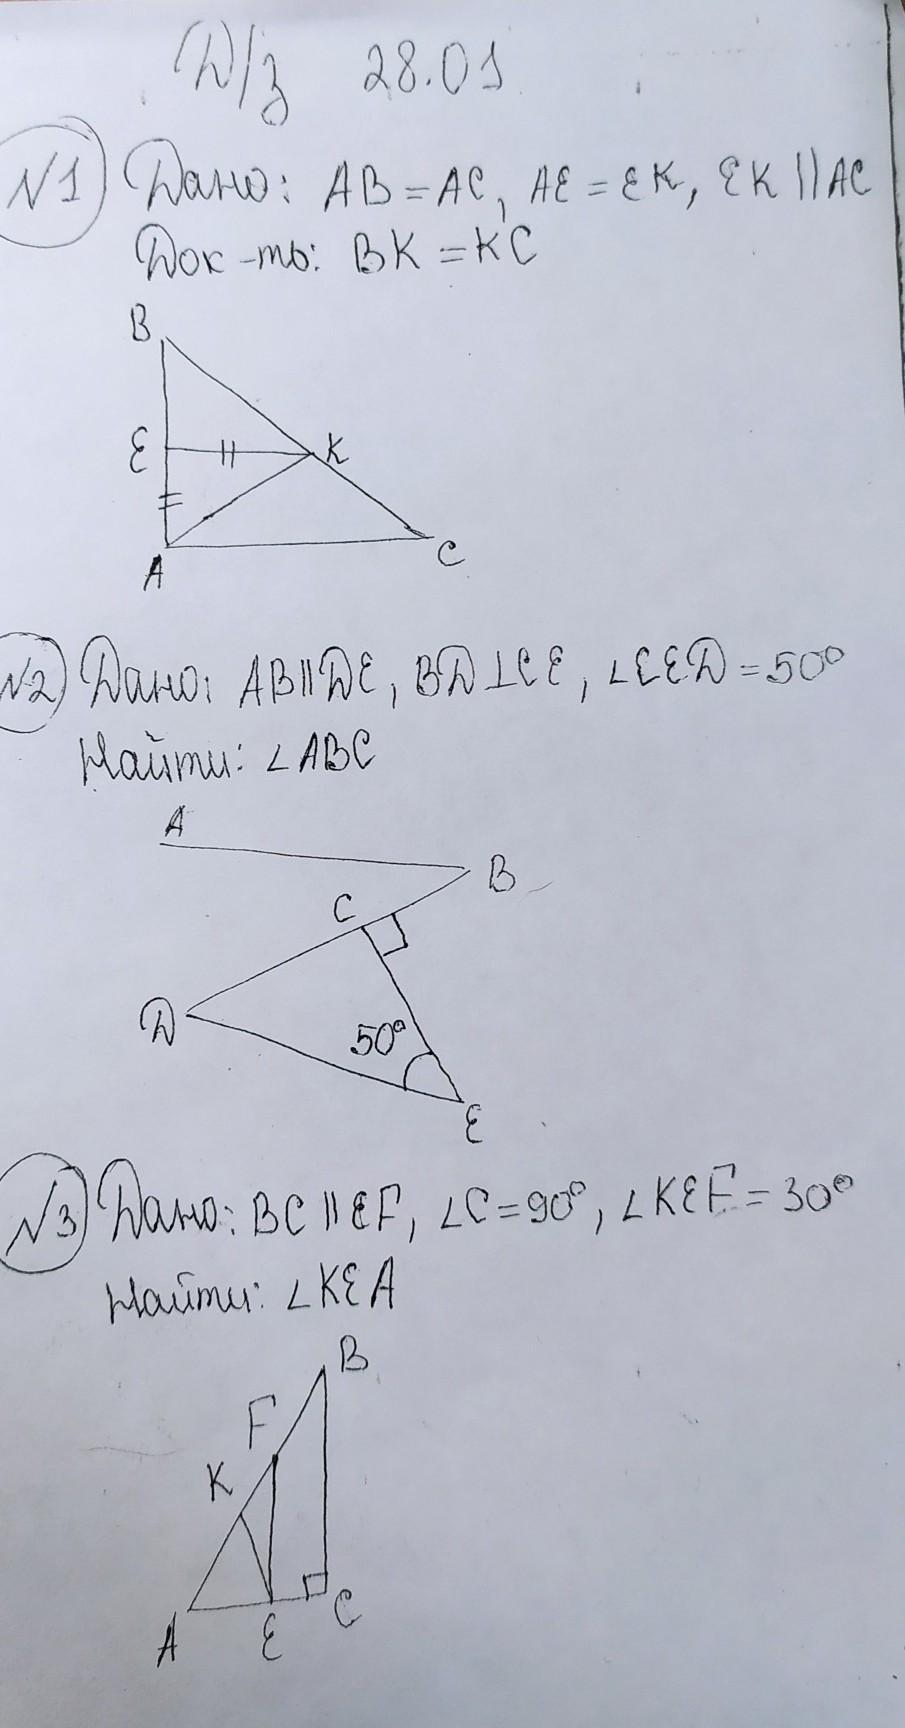 Д/з 28.01
№1 Дано: AB = AC, AE = EK, EK || AC
Док-ть: BK = KC
B
E
K
A
C
№2 Дано: AB || DE, BD ⊥ CE, ∠CED = 50°
Найти: ∠ABC
A
B
C
D
50°
E
№3 Дано: BC || EF, ∠C = 90°, ∠KEF = 30°
Найти: ∠KEA
B
F
K
A
E
C